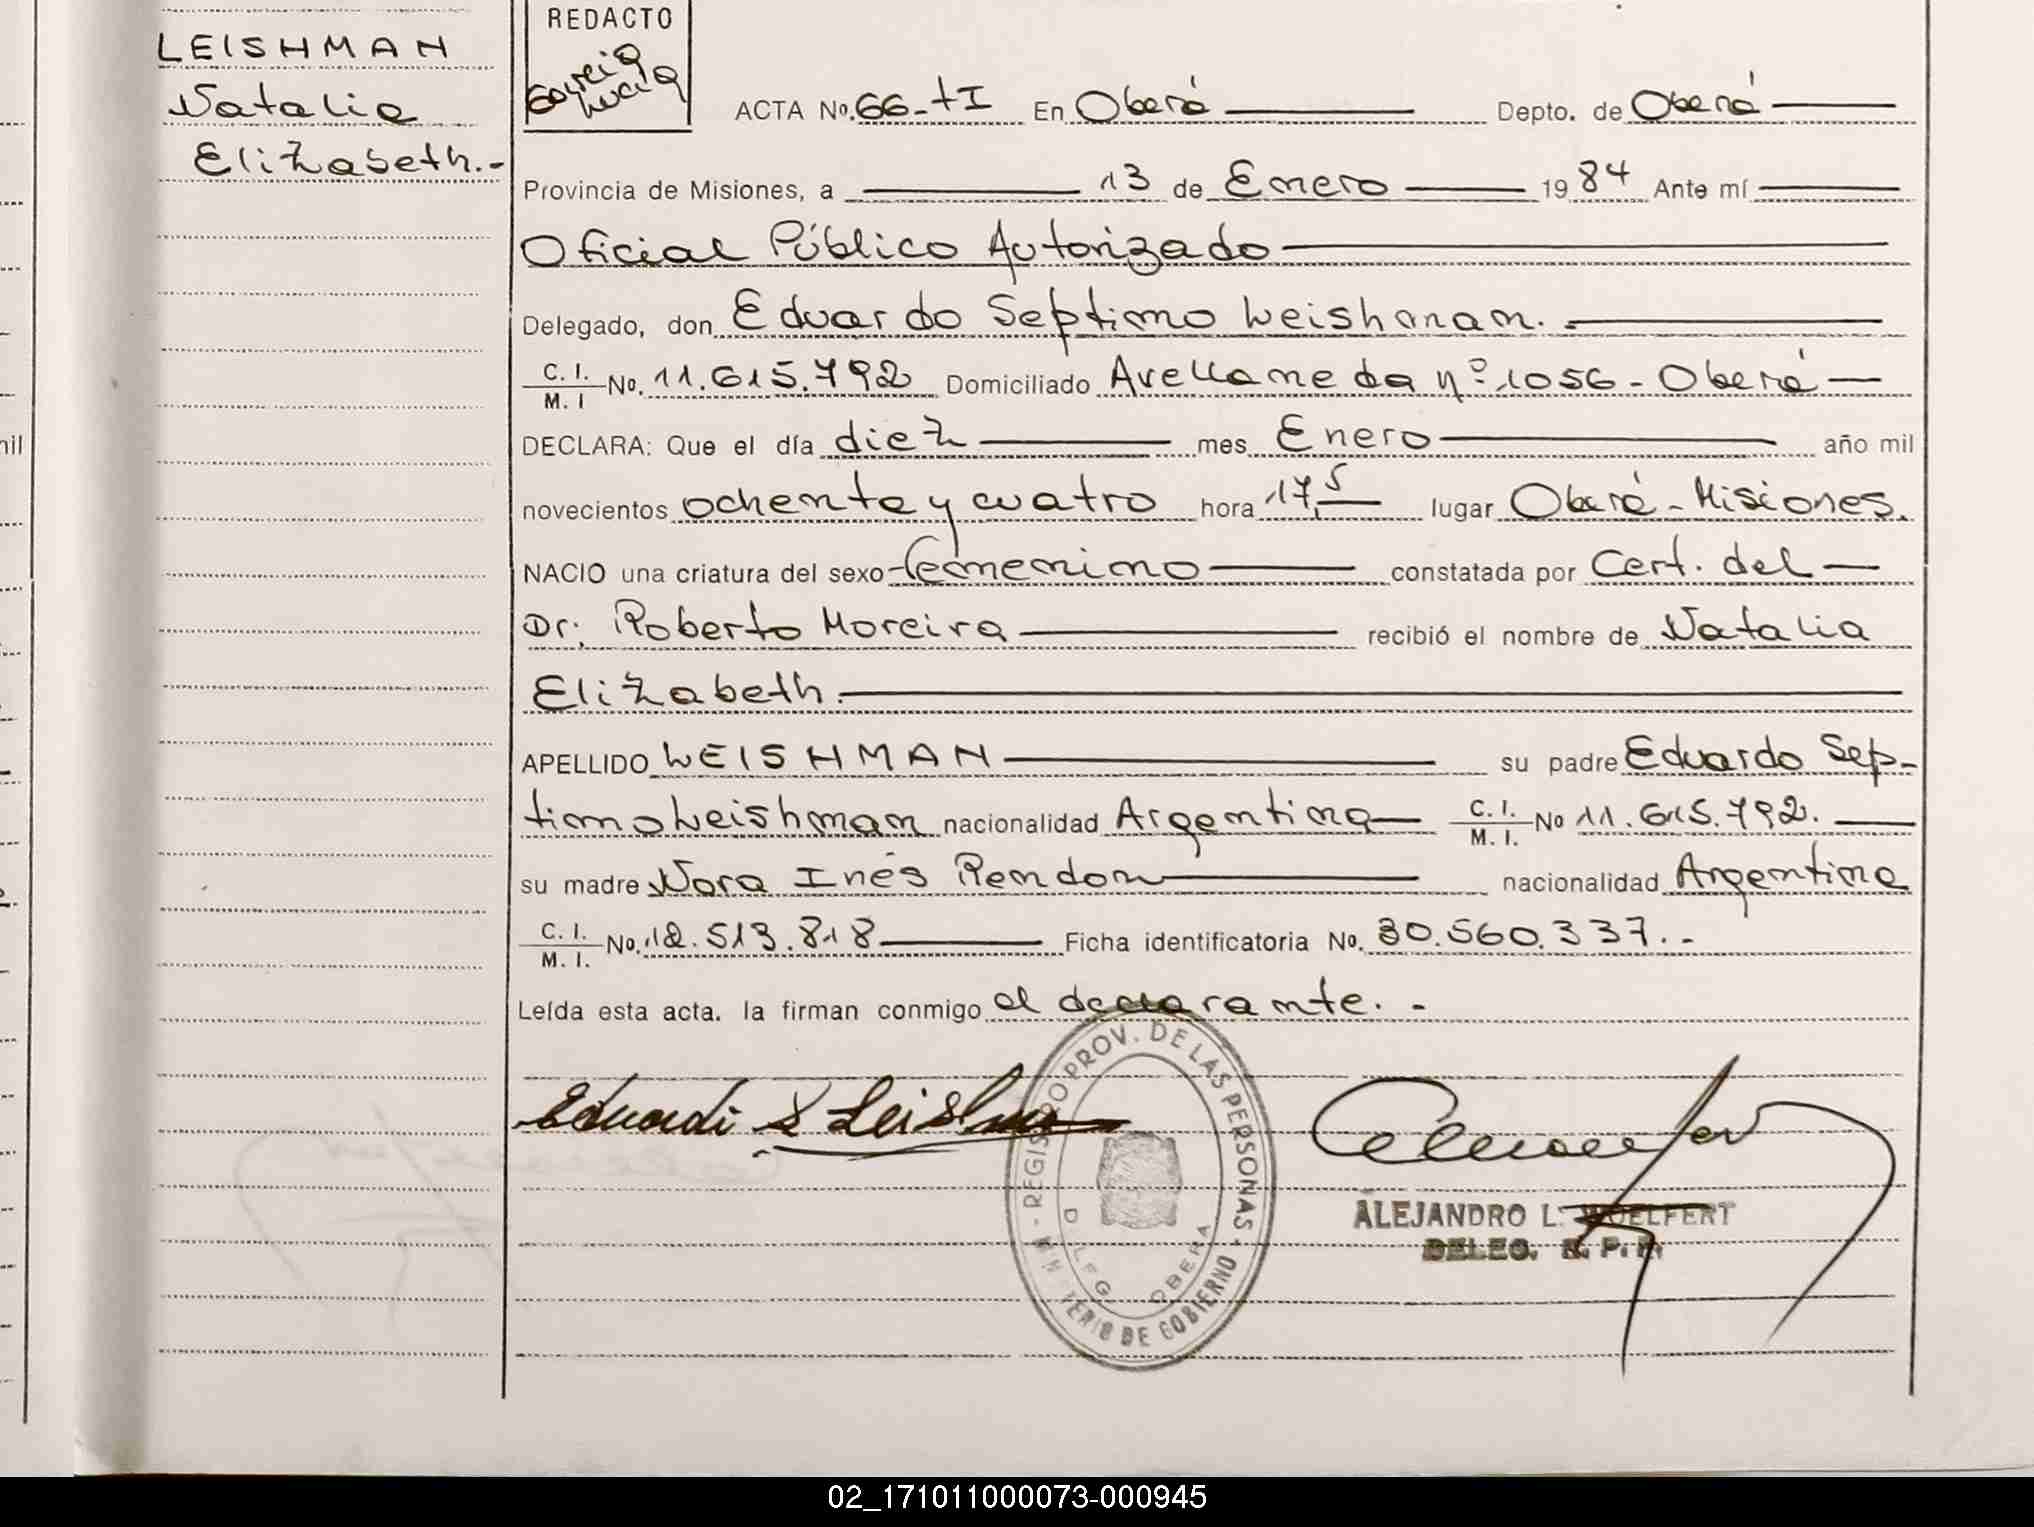 LEISHMAN
Natalia
Elizabeth.-
REDACTO
García
Lucía
ACTA No. 66-tI En Oberá Depto. de Oberá
Provincia de Misiones, a 13 de Enero 1984 Ante mí
Oficial Público Autorizado
Delegado, don Eduardo Septimo Leishman.
C. I.
M. I No. 11.615.792 Domiciliado Avellaneda nº 1056 - Oberá
DECLARA: Que el día diez mes Enero año mil
novecientos ochenta y cuatro hora 17,5 lugar Oberá - Misiones.
NACIO una criatura del sexo femenino constatada por Cert. del
Dr: Roberto Moreira recibió el nombre de Natalia
Elizabeth.
APELLIDO LEISHMAN su padre Eduardo Sep-
timo Leishman nacionalidad Argentina C. I.
M. I. No 11.615.792.
su madre Nora Inés Rendon nacionalidad Argentina
C. I.
M. I. No. 12.513.818 Ficha identificatoria No. 30.560.337.-
Leída esta acta. la firman conmigo el declarante.-
Eduardo S Leishman
REGISTRO PROV. DE LAS PERSONAS
MINISTERIO DE GOBIERNO
DELEG. OBERA
ALEJANDRO L. WOELFERT
DELEG. R. P. P.
nil
02_171011000073-000945